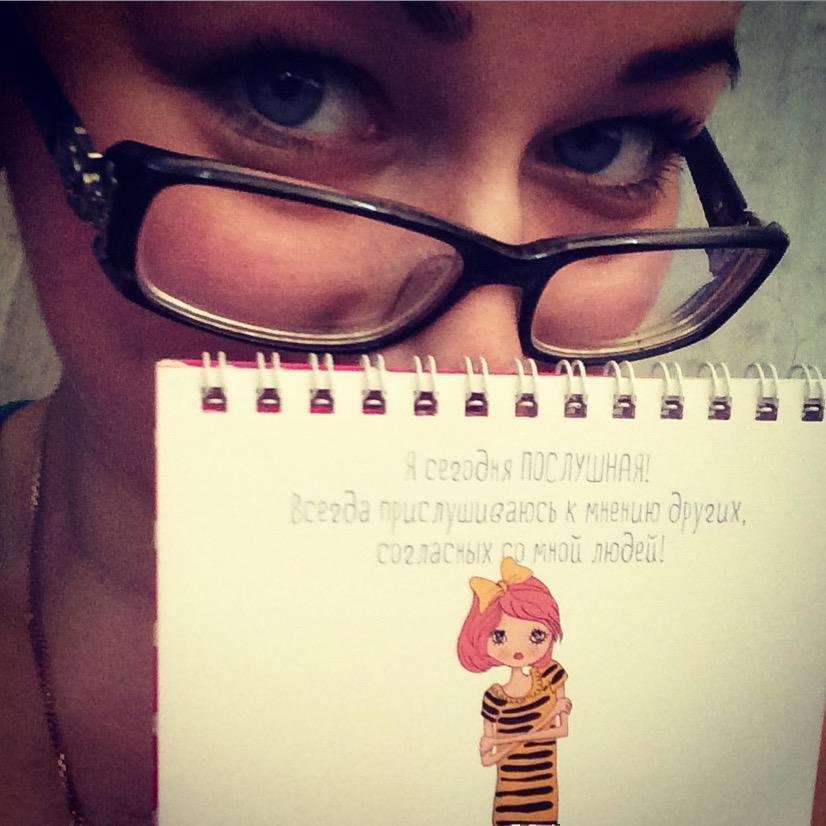 Я сегодня ПОСЛУШНАЯ!
Всегда прислушиваюсь к мнению других,
согласных со мной людей!